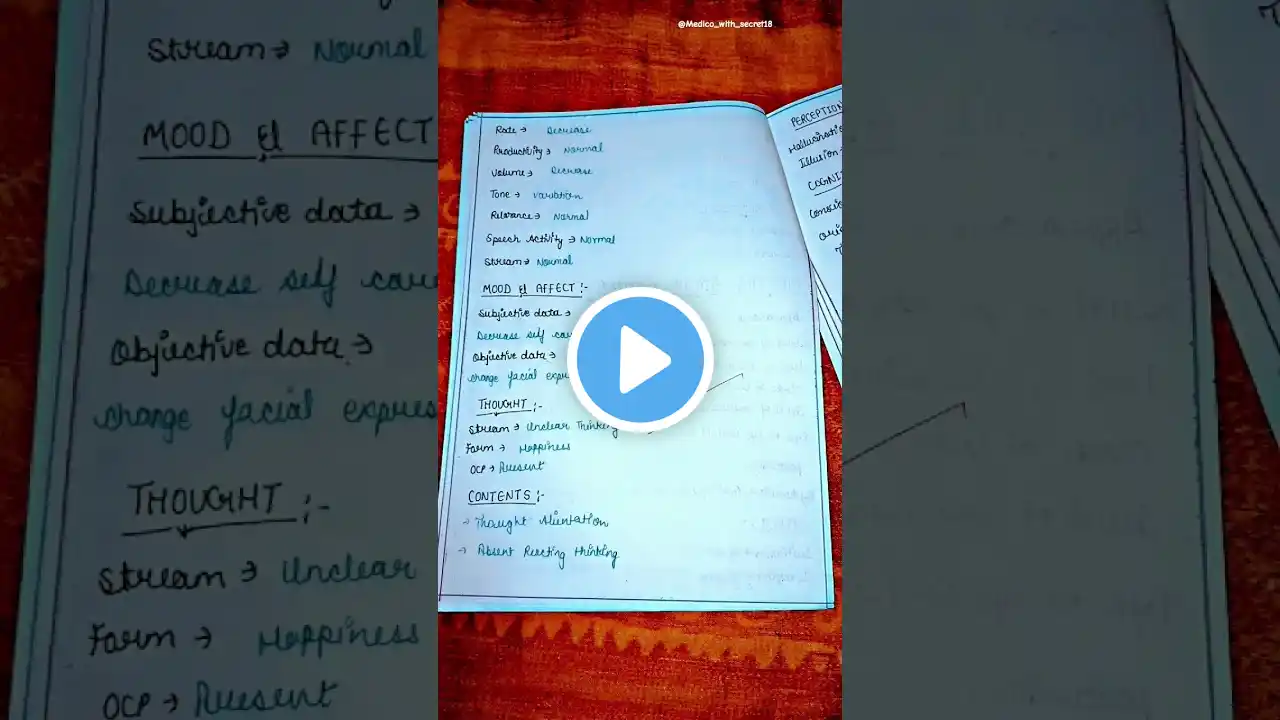 @Medico_with_secret18
Stream → Normal
MOOD & AFFECT
Subjective data →
Decrease self care
Objective data →
change facial expres
THOUGHT :-
Stream → Unclear
Form → Happiness
OCP → Present
Rate → Decrease
Productivity → Normal
Volume → Decrease
Tone → Variation
Relevance → Normal
Speech Activity → Normal
Stream → Normal
MOOD & AFFECT :-
Subjective data →
Decrease self ca
Objective data →
change facial expre
THOUGHT :-
Stream → Unclear Thinking
Form → Happiness
OCP → Present
CONTENTS :-
→ Thought
→ Absent Reacting thinking
PERCEPTION
Hallucinatio
Illusion →
COGNI